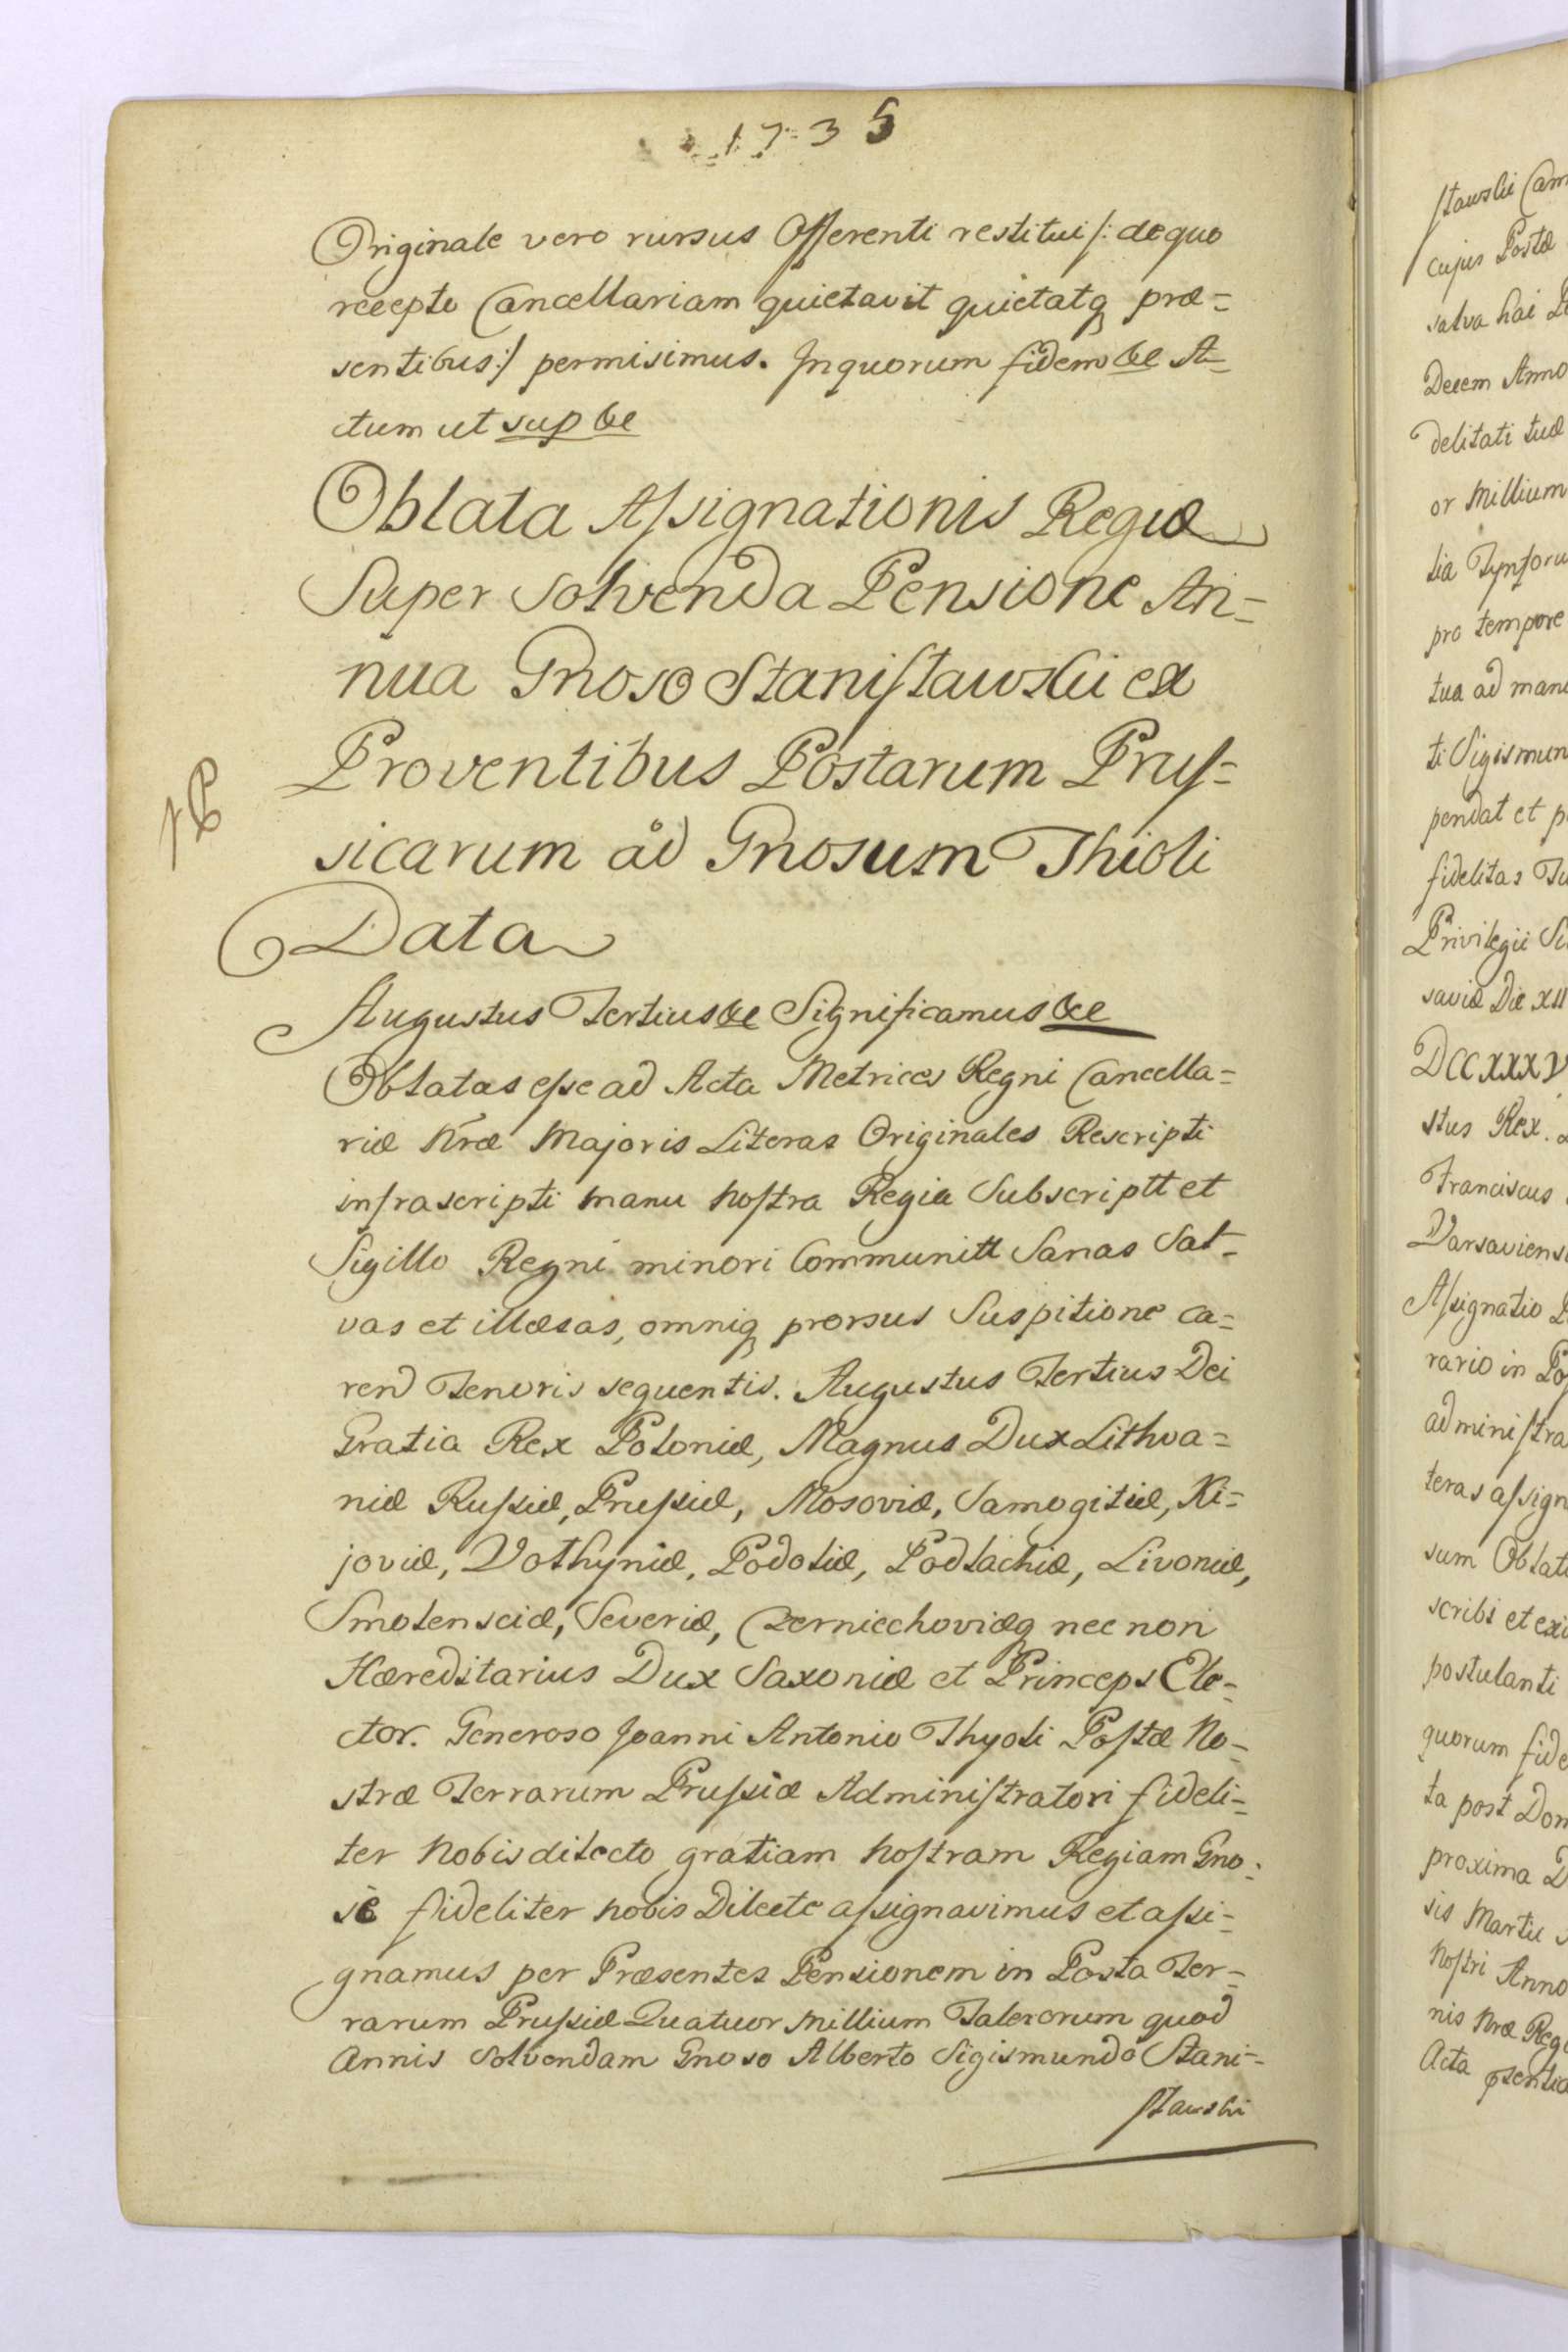 1735
Originale vero rursus Offerenti restitui /: de quo
recepto Cancellariam quietavit quietatq præ=
sentibus :/ permisimus. In quorum fidem &c A=
ctum ut sup &c
Oblata Assignationis Regiæ
Super Solvenda Pensione An=
nua Gnoso Stanisławski ex
Proventibus Postarum Prus=
sicarum ad Gnosum Thioli
Data
Augustus Tertius &c Significamus &c
Oblatas esse ad Acta Metrices Regni Cancella=
riæ Nræ Majoris Literas Originales Rescripti
infrascripti manu nostra Regia Subscriptt et
Sigillo Regni minori Communitt Sanas Sal=
vas et illæsas, omniq prorsus Suspitione ca=
rend Tenoris sequentis. Augustus Tertius Dei
Gratia Rex Poloniæ, Magnus Dux Lithva=
niæ Russiæ, Prussiæ, Mosoviæ, Samogitiæ, Ki=
joviæ, Volhyniæ, Podoliæ, Podlachiæ, Livoniæ,
Smolensciæ, Severiæ, Czerniechoviæq nec non
Hæreditarius Dux Saxoniæ et Princeps Ele=
ctor. Generoso Joanni Antonio Thyoli Postæ No=
stræ Terrarum Prussiæ Administratori fideli=
ter Nobis dilecto gratiam nostram Regiam Gno=
se fideliter nobis Dilecte assignavimus et assi=
gnamus per Præsentes Pensionem in Posta Ter=
rarum Prussiæ Quatuor Millium Talerorum quod
Annis Solvendam Gnoso Alberto Sigismundo Stani=
sławski
sławski Cam
cujus Postæ
salva hac
Decem Anno
delitati tuæ
or Millium
tia Tynforu
pro tempore
tua ad manu
ti Sigismun
pendat et p
fidelitas Tu
Privilegii Su
saviæ Die XII
DCCXXXV
stus Rex.
Franciscus
Varsaviens
Assignatio
rario in Po
administra
teras assign
sum Oblat
scribi et exi
postulanti
quorum fide
ta post Dom
proxima D
sis Martii
Nostri Anno
nis Nræ Reg
Acta